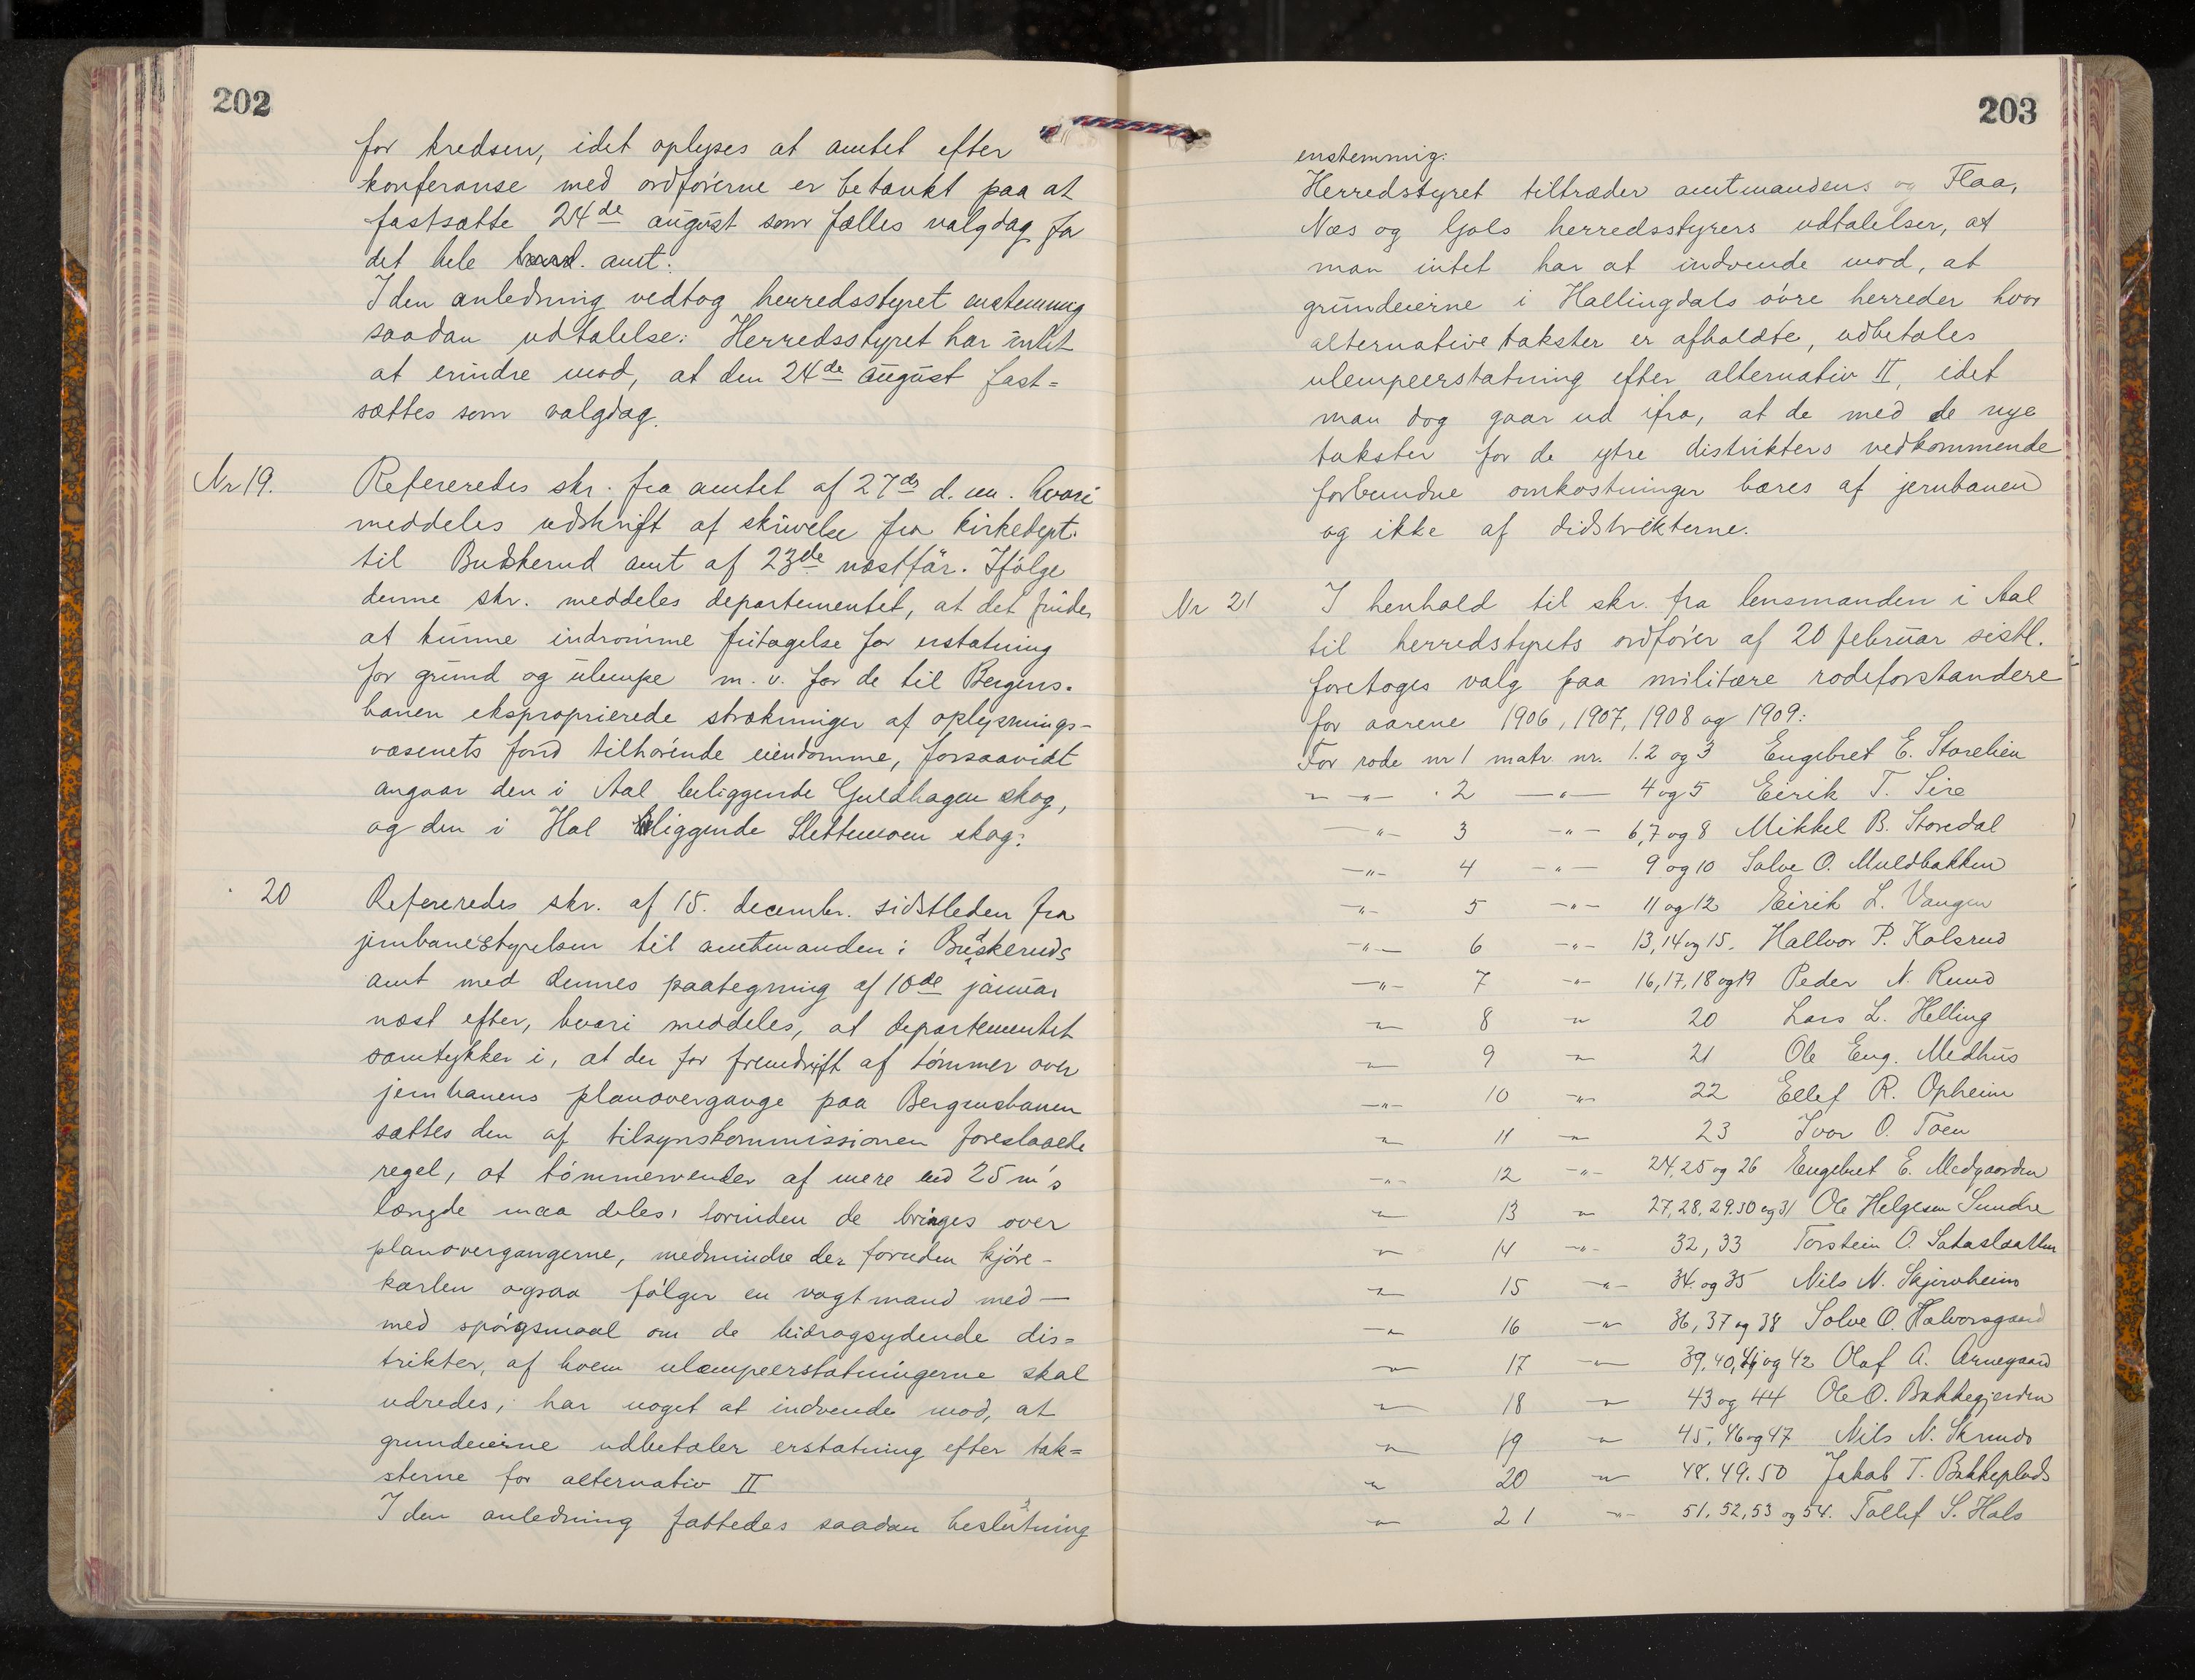 202
for kredsen, idet oplyses at amtet efter
konferanse med ordförerne er betænkt paa at
fastsætte 24de august som fælles valgdag for
det hele amt:
I den anledning vedtog herredsstyret enstemmig
saadan udtalelse: Herredsstyret har intet
at erindre mod, at den 24de august fast=
sættes som valgdag.
Nr 19. Refereredes skr. fra amtet af 27de d. m. hvori
meddeles udskrift af skrivelse fra kirkedept.
til Buskerud amt af 23de næstfør. Ifölge
denne skr. meddeles departementet, at det finder
at kunne indrömme fritagelse for erstatning
for grund og ulempe m. v. for de til Bergens-
banen eksproprierede strækninger af oplysnings-
væsenets fond tilhörende eiendomme, forsaavidt
angaar den i Aal beliggende Guldhagen skog,
og den i Hol beliggende Slettemoen skog:
20 Refereredes skr. af 15. decembr. sidstleden fra
jernbanestyrelsen til amtmanden i Buskeruds
amt med dennes paategning af 10de januar
næst efter, hvori meddeles, at departementet
samtykker i, at der for fremdrift af tömmer over
jernbanens planovergange paa Bergensbanen
sættes den af tilsynskommissionen foreslaaede
regel, at tömmervender af mere end 25 m's
længde maa deles, forinden de bringes over
planovergangerne, medmindre der foruden kjöre-
karlen ogsaa fölger en vagtmand med —
med spörgsmaal om de bidragsydende dis=
trikter, af hvem ulempeerstatningerne skal
udredes, har noget at indvende mod, at
grundeierne udbetaler erstatning efter tak=
sterne for alternativ II
I den anledning fattedes saadan beslutning
203
enstemmig:
Herredstyret tiltræder amtmandens og Flaa,
Næs og Gols herredsstyrers udtalelser, at
man intet har at indvende mod, at
grundeierne i Hallingdals övre herreder hvor
alternative takster er afholdte, udbetales
ulempeerstatning efter alternativ II, idet
man dog gaar ud ifra, at de med de nye
takster for de ytre distrikters vedkommende
forbundne omkostninger bæres af jernbanen
og ikke af didstrikterne.
Nr 21 I henhold til skr. fra lensmanden i Aal
til herredstyrets ordförer af 20 februar sistl.
foretoges valg paa militære rodeforstandere
for aarene 1906, 1907, 1908 og 1909:
For rode nr 1 matr. nr. 1.2 og 3 Engebret E. Storelien
—„— 2 —„— 4 og 5 Eirik T. Sire
—„— 3 —„— 6,7 og 8 Mikkel B. Storedal
—„— 4 —„— 9 og 10 Solve O. Muldbakken
—„— 5 —„— 11 og 12 Eirik L. Vangen
—„— 6 —„— 13, 14 og 15. Hallvor P. Kolsrud
—„— 7 —„— 16, 17, 18 og 19 Peder N. Ruud
—„— 8 —„— 20 Lars L. Helling
—„— 9 —„— 21 Ole Eng. Medhus
—„— 10 —„— 22 Ellef R. Opheim
—„— 11 —„— 23 Ivor O. Toen
—„— 12 —„— 24, 25 og 26 Engebret E. Medgaarden
—„— 13 —„— 27, 28, 29.30 og 31 Ole Helgesen Sundre
—„— 14 —„— 32, 33 Torstein O. Sataslaatten
—„— 15 —„— 34. og 35 Nils N. Skjervheim
—„— 16 —„— 36, 37 og 38 Solve O. Halvorsgaard
—„— 17 —„— 39, 40, 41 og 42 Olaf A. Arnegaard
—„— 18 —„— 43 og 44 Ole O. Bakkegjerden
—„— 19 —„— 45, 46 og 47 Nils N. Skrindo
—„— 20 —„— 48. 49. 50 Jakob T. Bakkeplads
—„— 21 —„— 51, 52, 53 og 54. Tollef S. Hals